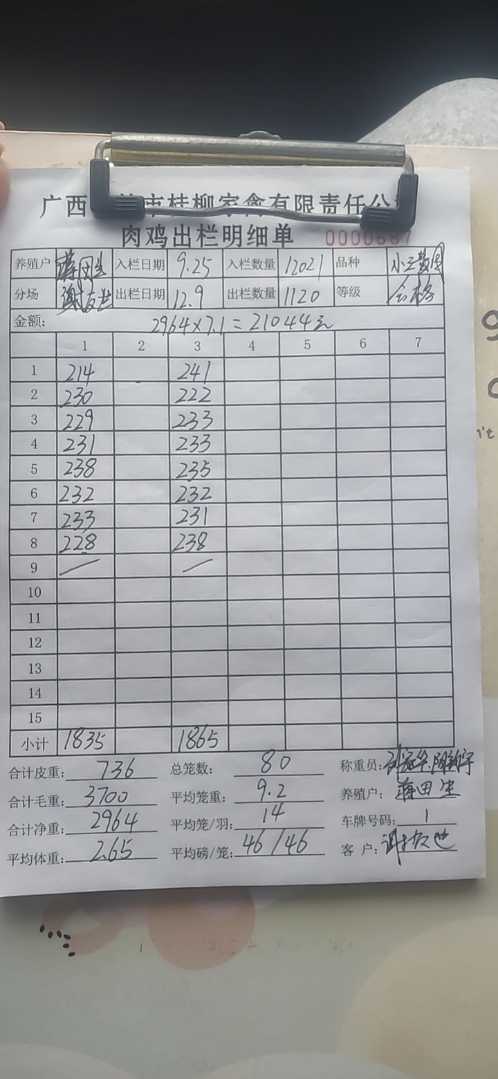 广西 市桂柳家禽有限责任公
肉鸡出栏明细单 0000687
养殖户 蒋田生 入栏日期 9.25 入栏数量 12021 品种
分场 出栏日期 12.9 出栏数量 1120 等级 合格
金额: 2964×7.1=21044元
1 2 3 4 5 6 7
1 214 241
2 230 222
3 229 233
4 231 233
5 238 235
6 232 232
7 233 231
8 228 238
9 / /
10
11
12
13
14
15
小计 1835 1865
合计皮重: 736 总笼数: 80 称重员:
合计毛重: 3700 平均笼重: 9.2 养殖户: 蒋田生
合计净重: 2964 平均笼/羽: 14 车牌号码: 1
平均体重: 2.65 平均磅/笼: 46/46 客 户: